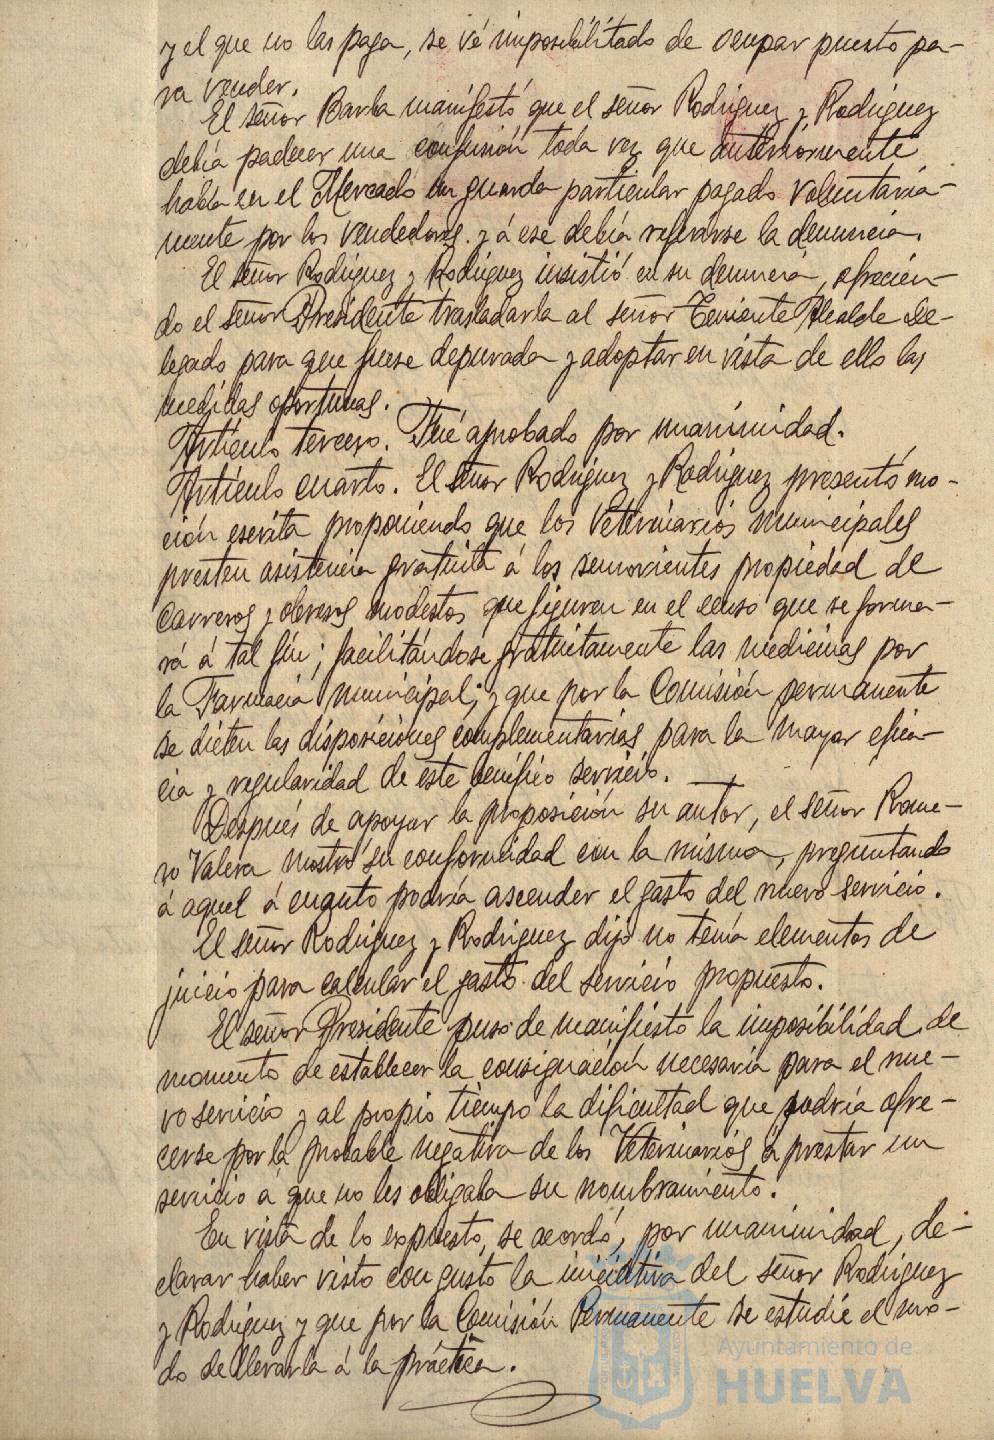 y el que no las paga, se vé imposibilitado de ocupar puesto pa-
ra vender.
El señor Barba manifestó que el señor Rodríguez y Rodríguez
debía padecer una confusión toda vez que anteriormente
había en el Mercado un guarda particular pagado voluntaria-
mente por los vendedores y á ese debía referirse la denuncia.
El señor Rodríguez y Rodríguez insistió en su denuncia, ofrecien-
do el señor Presidente trasladarla al señor Teniente Alcalde De-
legado para que fuese depurada y adoptar en vista de ello las
medidas oportunas.
Artículo tercero. Fué aprobado por unanimidad.
Artículo cuarto. El señor Rodríguez y Rodríguez presentó mo-
ción escrita proponiendo que los Veterinarios municipales
presten asistencia gratuita á los semovientes propiedad de
carreros y obreros modestos que figuren en el censo que se forma-
rá á tal fin; facilitándose gratuitamente las medicinas por
la Farmacia municipal; y que por la Comisión permanente
se dicten las disposiciones complementarias para la mayor efica-
cia y regularidad de este benéfico servicio.
Después de apoyar la proposición su autor, el señor Rome-
ro Valera mostró su conformidad con la misma, preguntando
á aquel á cuanto podría ascender el gasto del nuevo servicio.
El señor Rodríguez y Rodríguez dijo no tenía elementos de
juicio para calcular el gasto del servicio propuesto.
El señor Presidente puso de manifiesto la imposibilidad de
momento de establecer la consignación necesaria para el nue-
vo servicio y al propio tiempo la dificultad que podría ofre-
cerse por la probable negativa de los Veterinarios á prestar un
servicio á que no les obligaba su nombramiento.
En vista de lo expuesto, se acordó, por unanimidad, de-
clarar haber visto con gusto la iniciativa del señor Rodríguez
y Rodríguez y que por la Comisión Permanente se estudie el mo-
do de llevarla á la práctica.
Ayuntamiento de
HUELVA